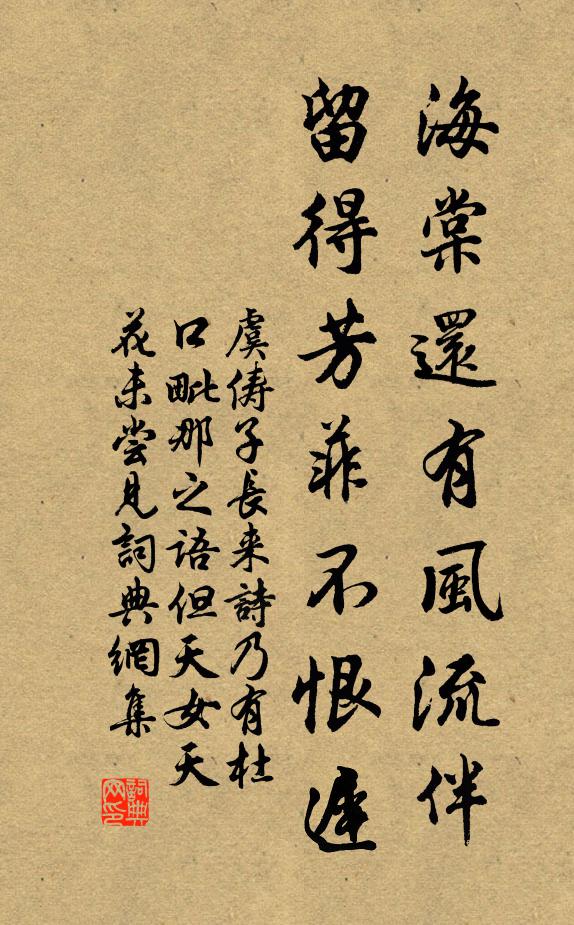 海棠還有風流伴
留得芳菲不恨遲
虞儔子長來詩乃有杜
口毗那之語但天女天
花未嘗見詞典網集
詞典网印